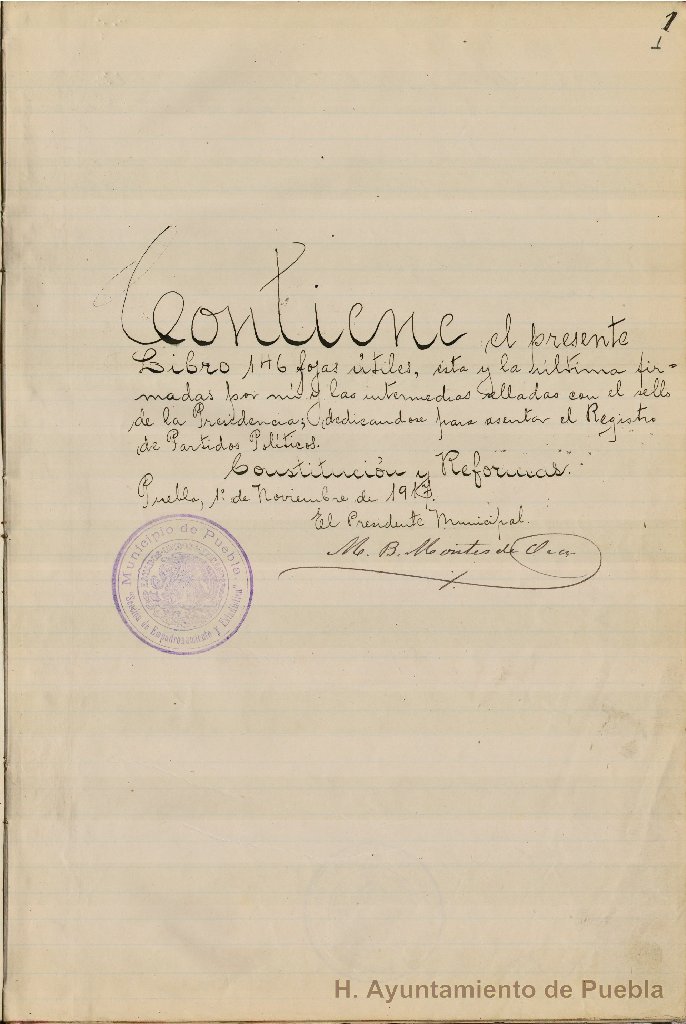 1
1
Contiene el presente
Libro 146 fojas útiles, esta y la última fir-
madas por mí y las intermedias selladas con el sello
de la Presidencia; dedicandose para asentar el Registro
de Partidos Políticos.
Constitución y Reformas.
Puebla, 1º de Noviembre de 191
El Presidente Municipal.
M. B. Montes de Oca
Municipio de Puebla.
"Sección de Empadronamiento y Estadística"
H. Ayuntamiento de Puebla